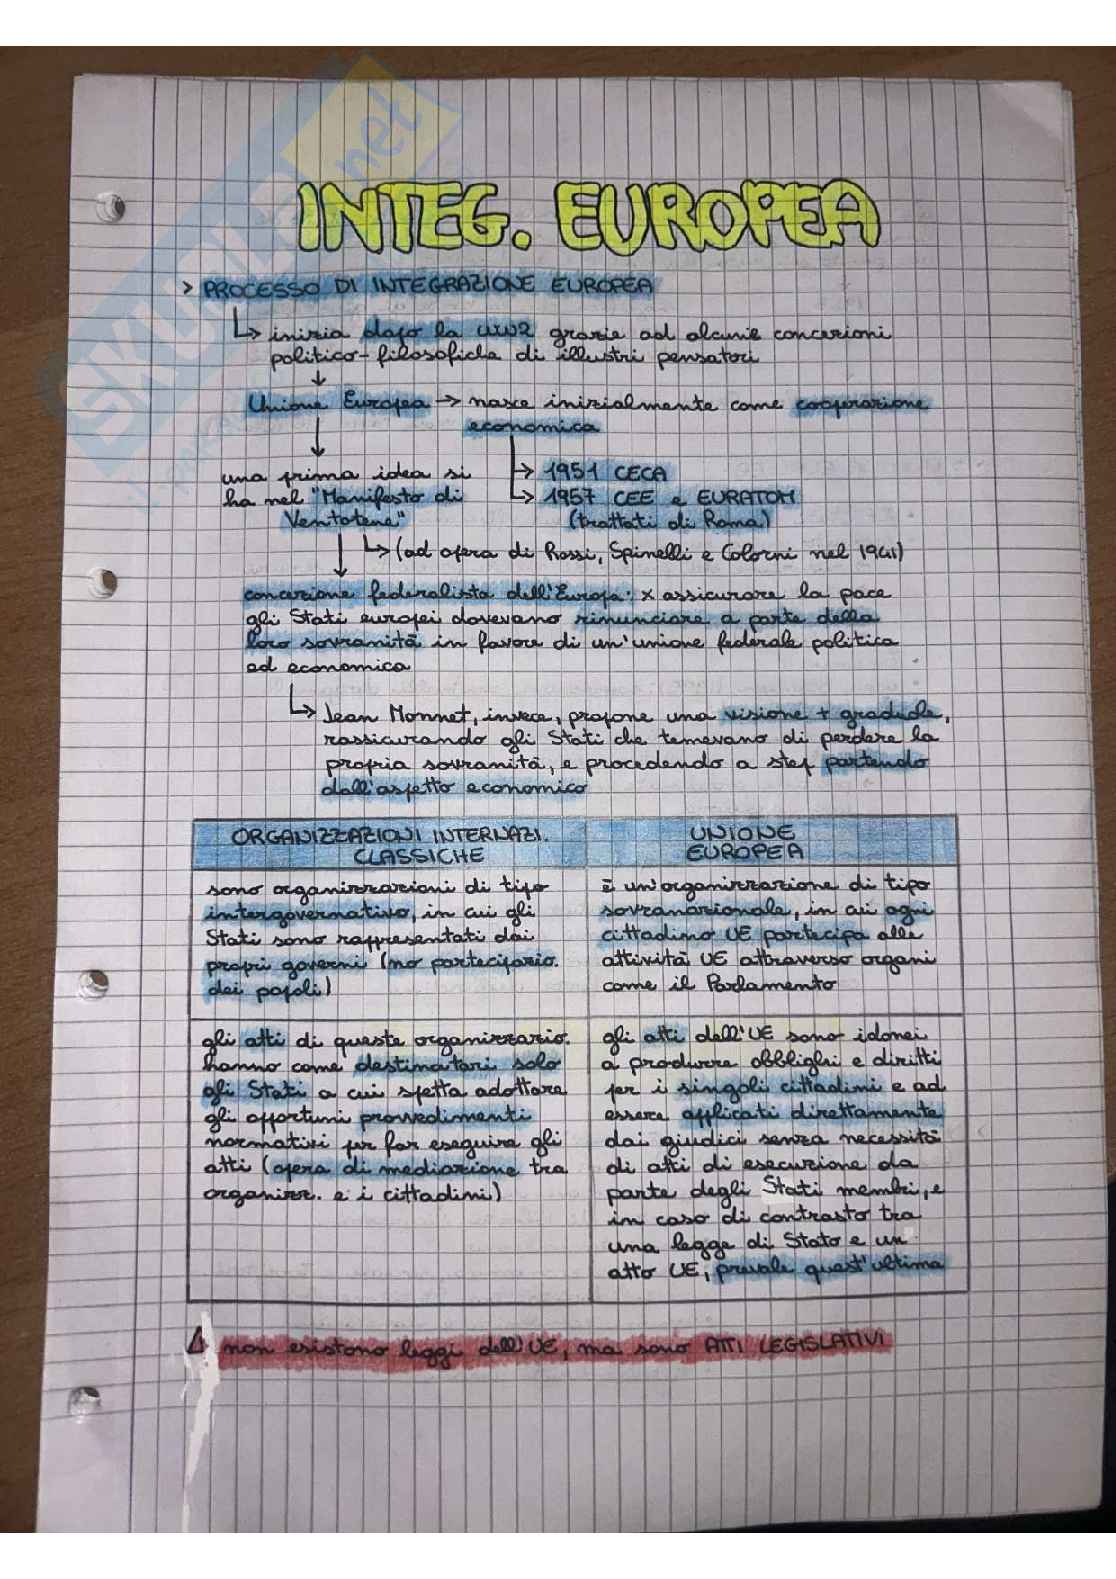 SKUOLA.net
INTEG. EUROPEA
> PROCESSO DI INTEGRAZIONE EUROPEA
↳ inizia dopo la WW2 grazie ad alcune concezioni
politico-filosofiche di illustri pensatori
↓
Unione Europea → nasce inizialmente come cooperazione
economica
↓
↳ 1951 CECA
↳ 1957 CEE e EURATOM
(trattati di Roma)
una prima idea si
ha nel "Manifesto di
Ventotene"
↳ (ad opera di Rossi, Spinelli e Colorni nel 1941)
↓
concezione federalista dell'Europa: x assicurare la pace
gli Stati europei dovevano rinunciare a parte della
loro sovranità in favore di un'unione federale politica
ed economica
↳ Jean Monnet, invece, propone una visione + graduale,
rassicurando gli Stati che temevano di perdere la
propria sovranità, e procedendo a step partendo
dall'aspetto economico
ORGANIZZAZIONI INTERNAZI.
CLASSICHE
sono organizzazioni di tipo
intergovernativo, in cui gli
Stati sono rappresentati dai
propri governi (no partecipazio.
dei popoli)
UNIONE
EUROPEA
è un'organizzazione di tipo
sovranazionale, in cui ogni
cittadino UE partecipa alle
attività UE attraverso organi
come il Parlamento
gli atti di queste organizzazio.
hanno come destinatari solo
gli Stati a cui spetta adottare
gli opportuni provvedimenti
normativi per far eseguire gli
atti (opera di mediazione tra
organizz. e i cittadini)
gli atti dell'UE sono idonei
a produrre obblighi e diritti
per i singoli cittadini e ad
essere applicati direttamente
dai giudici senza necessità
di atti di esecuzione da
parte degli Stati membri, e
in caso di contrasto tra
una legge di Stato e un
atto UE, prevale quest'ultima
⚠ non esistono leggi dell'UE, ma sono ATTI LEGISLATIVI